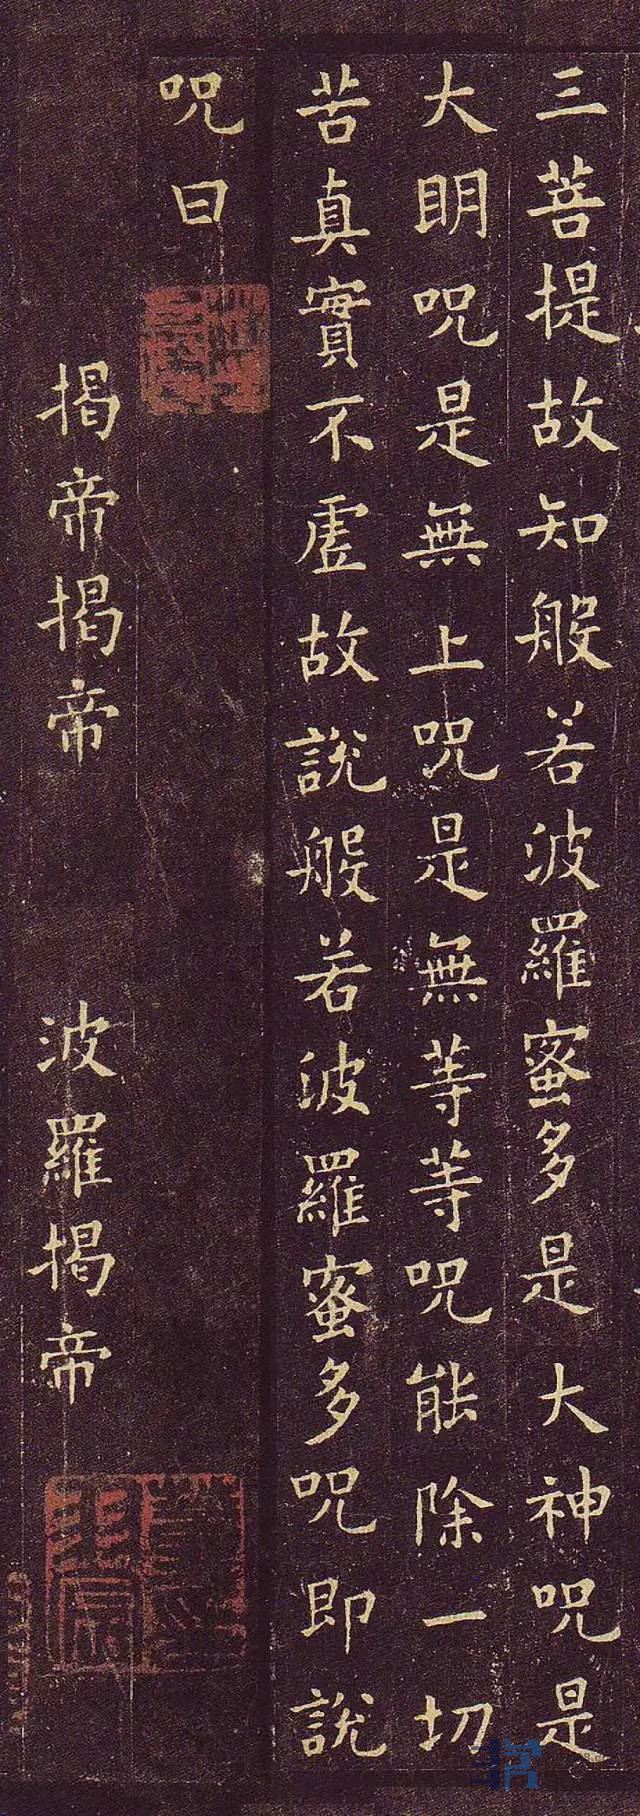 三菩提故知般若波羅蜜多是大神呪是
大明呪是無上呪是無等等呪能除一切
苦真實不虛故說般若波羅蜜多呪即說
呪曰
揭帝揭帝 波羅揭帝